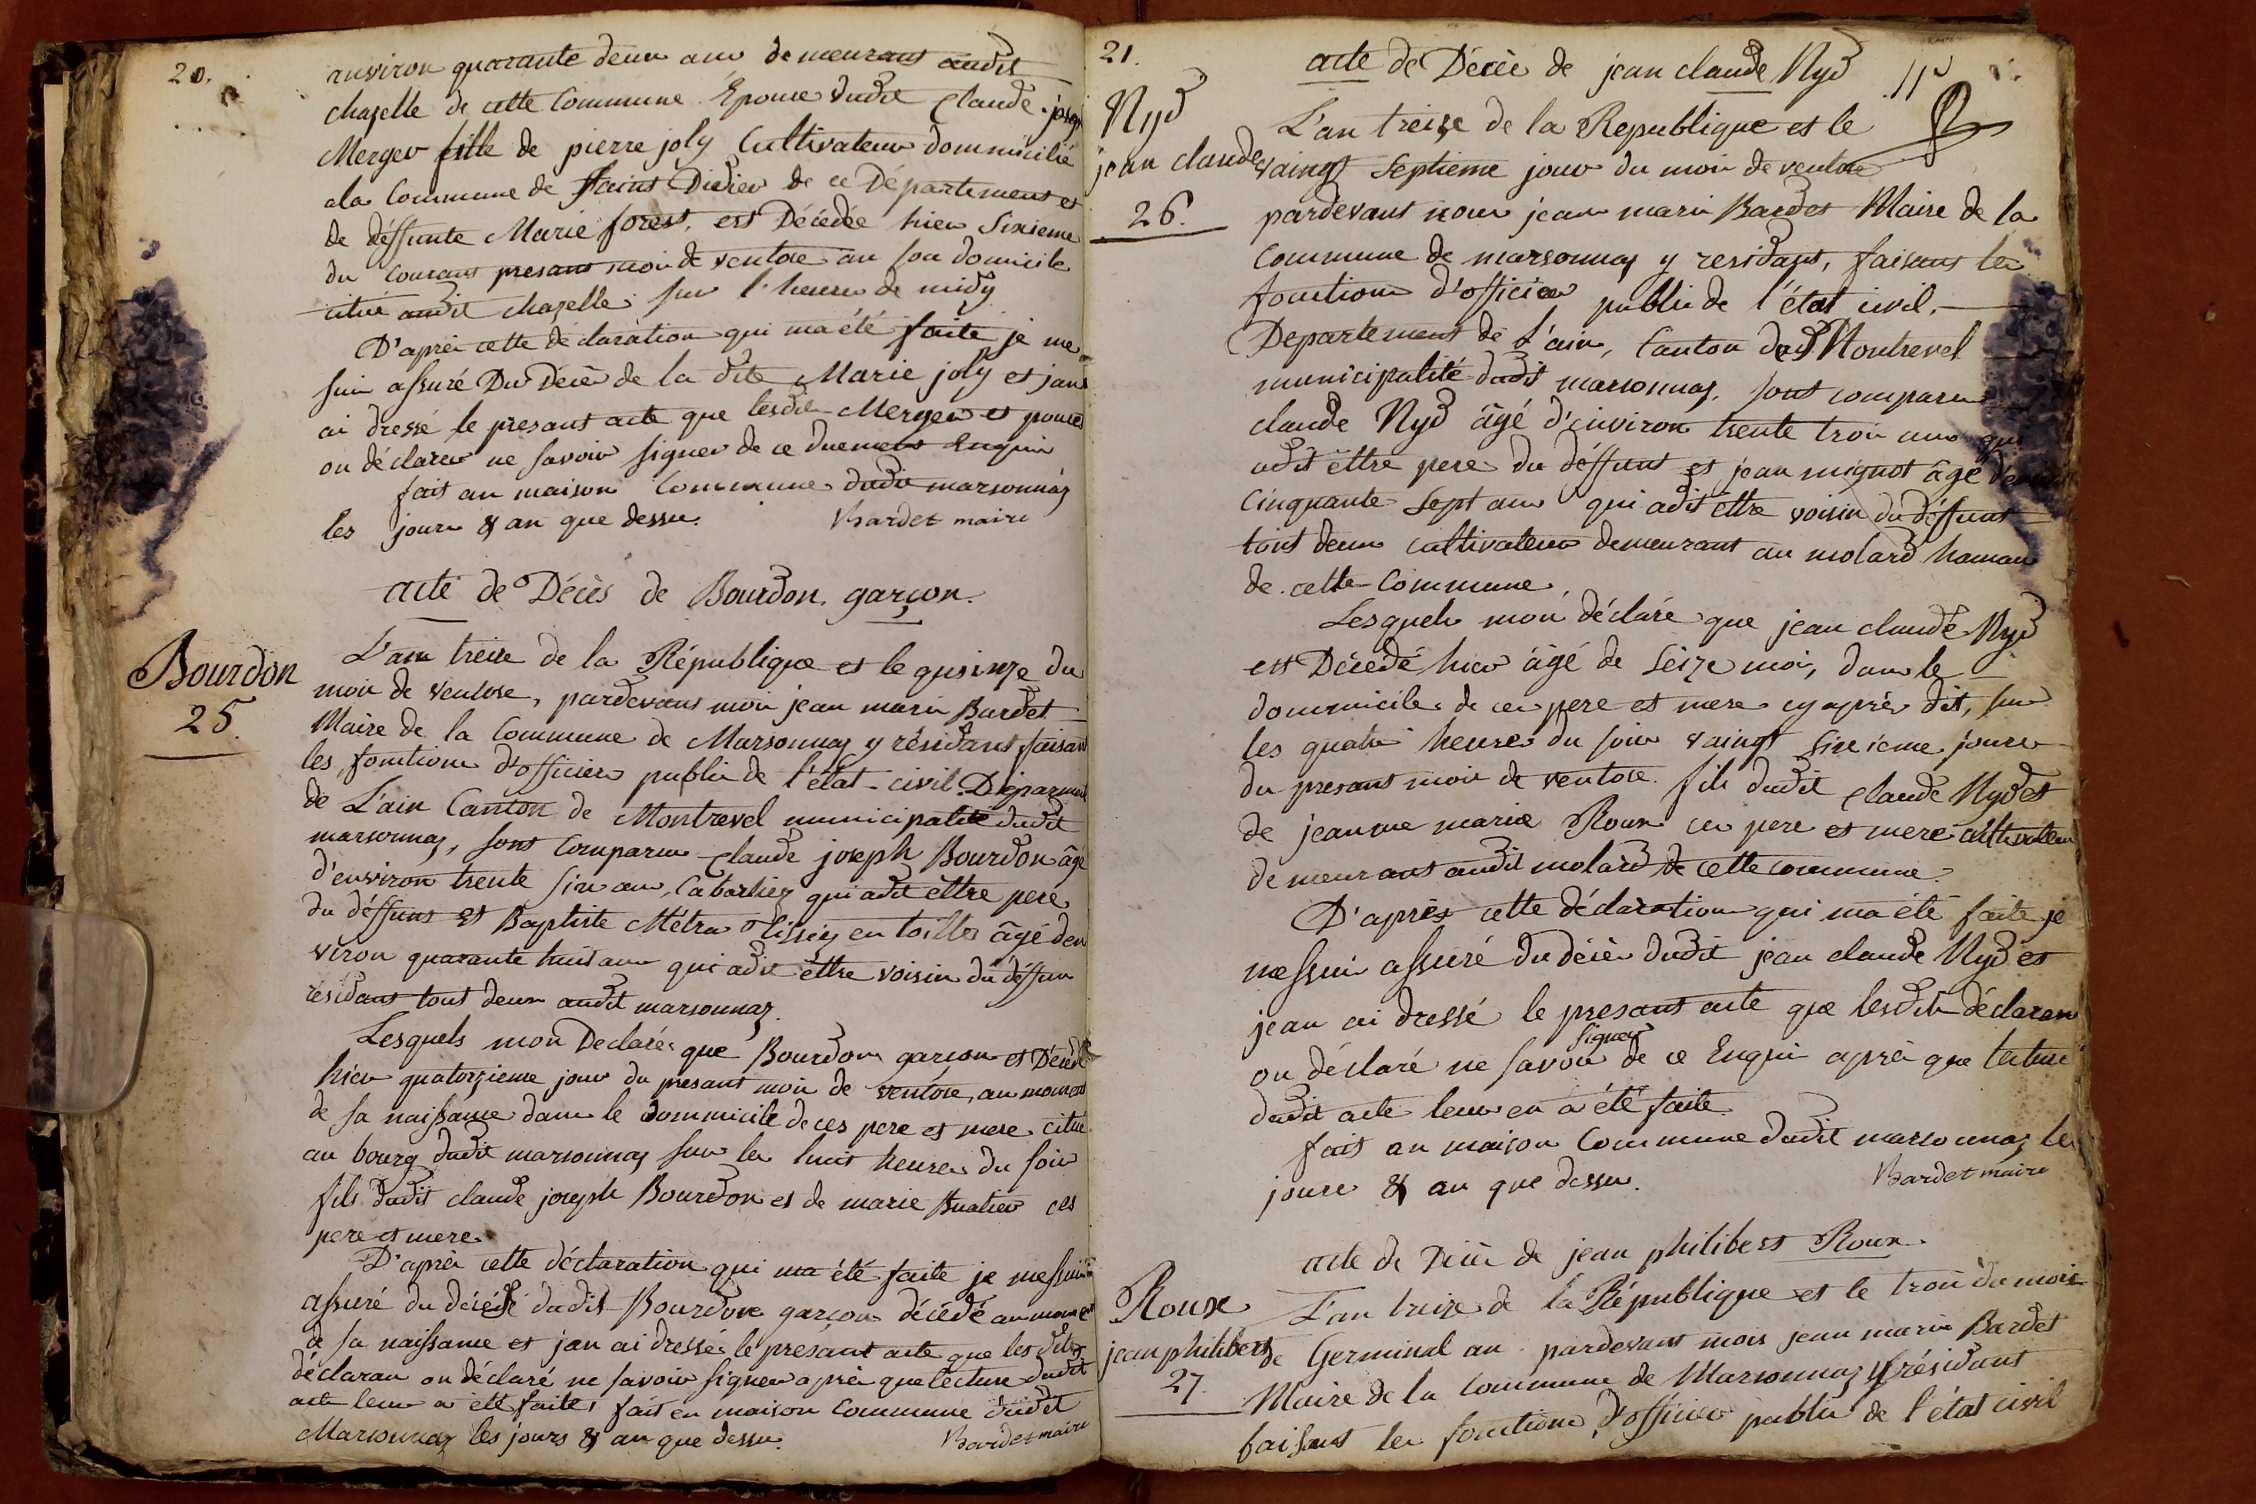 20.
anviron quarante deux ans demeurant audit
chazelle de cette Commune Épouse dudit Claude joseph
Merger fille de pierre joly Cultivateur dommicilié
ala Commune de Saint Didier de ce Département et
de déffunte Marie forest, est Décédée hier Sixieme
du courant presant mois de ventose an son domicile
citué audit chazelle sur l'heure de midy
D'aprèi cette déclaration qui ma été faite je me
suis assuré Du Décès de la dite Marie joly et jans
ai dressé le presant acte que lesdit Merger et
on déclarer ne savoir signer de ce duement Enquis
fait an maison Commune dudit marsonnaz
les jours & an que dessu. Bardet maire
acte de Décès de Bourdon garçon.
Bourdon
25.
L'an treize de la République et le quinze du
mois de ventose, pardevant moi jean marie Bardet
Maire de la Commune de Marsonnaz y résidant faisant
les fonctions d'officier public de l'état civil Déparment
de L'ain Canton de Montrevel municipalité dudit
marsonnaz, sont Comparu Claude joseph Bourdon âgé
d'environ trente six ans, Cabartier qui adit ettre pere
du déffunt et Baptiste Métra Tissier en toilles âgé den
viron quarante huit ans qui adit êttre voisin du déffun
résidant tout deux audit marsonnaz.
Lesquels mon Déclarés que Bourdon garçon est Décédé
hier quatorzieme jour du presant mois de ventose, au moment
de sa naissance dans le dommicile de ces pere et mere citué
au bourg dudit marsonnaz sur les huit heures du soir
fils dudit claude joseph Bourdon et de marie Buatier ces
pere et mere
D'aprèi cette déclaration qui ma été faite je messuis
assuré du décédé dudit Bourdon garçon décédé au moment
de sa naissance et jan ai dressé le présant acte que les dits
déclaran on déclaré ne savoir signer aprèi que lecture dudit
acte leur a été faite, fait en maison Commune dudit
Marsonnaz les jours & an que dessu. Bardet maire
21.
acte de Décèi de jean claude Nyd
Nyd
jean claude
26.
L'an treize de la Republique et le
vaingt Septieme jour du mois de ventose
pardevant nous jean marie Bardet Maire de la
Commune de marsonnaz y residant, faisant les
fonctions d'officier public de l'état civil.
Departement de L'ain, Canton de Montrevel
municipalité dudit marsonnaz, sont comparu
claude Nyd âgé d'environ trente trois ans qui
adit êttre pere du déffunt et jean mignot âgé
Cinquante Sept ans qui adit ettre voisin du déffunt
tout deux cultivateur demeurant au molard hamau
de cette Commune
Lesquels mon déclaré que jean claude Nyd
est Décédé hier âgé de seize mois, dans le
dommicile de ces pere et mere cy aprèr dit, sur
les quatre heures du soir vaingt sixieme jours
du presant mois de ventose. fils dudit Claude Nyd et
de jeanne marie Roux ces pere et mere cultivateur
demeurant audit molard de cette commune.
D'après cette déclaration qui ma été faite je
messuis assuré du décèr dudit jean claude Nyd et
jean ai dressé le presant acte que lesdits déclaran
signer
on déclaré ne savoir de ce Enquis aprèi que lecture
dudit acte leur en a été faite
fait an maison Commune dudit marsonnaz les
jours & an que dessu. Bardet maire
acte de Décèr de jean philibert Roux.
Roux
jean philibert
27.
L'an treize de la République et le trois du mois
de Germinal an pardevant mois jean marie Bardet
Maire de la Commune de Marsonnaz y résidant
faisant les fonctions d'officier public de l'état civil